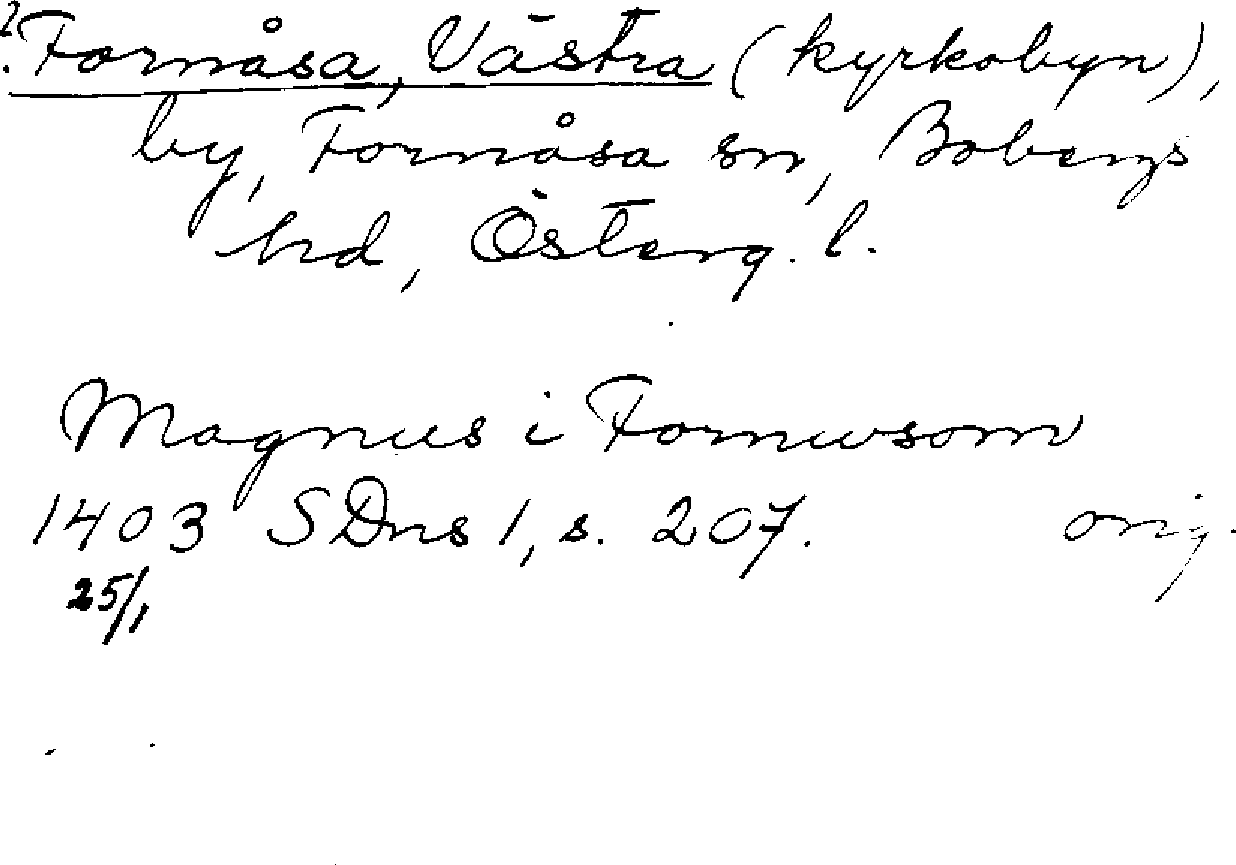 ? Fornåsa, Västra (kyrkobyn),
by, Fornåsa sn, Bobergs
hd, Österg. l.
Magnus i Fornwsom
1403 SDns 1, s. 207. orig.
25/1